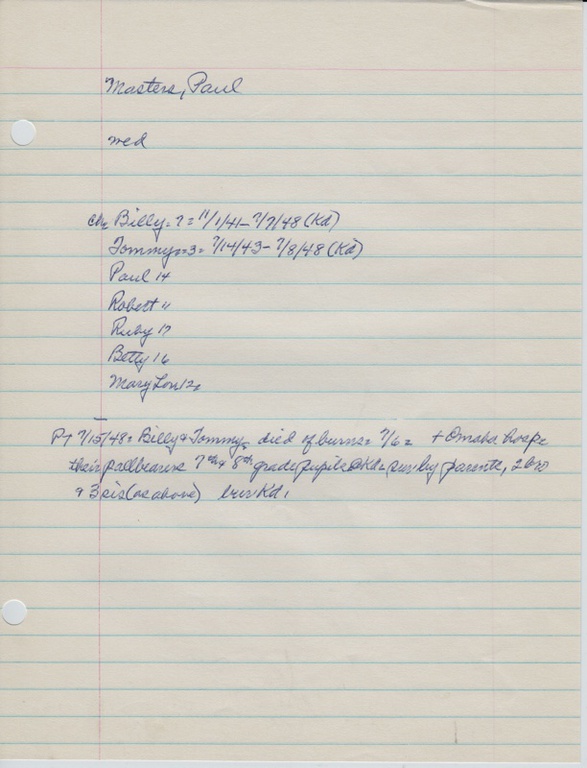 Masters, Paul
med
ch: Billy-7= 11/1/41- 7/7/48 (Kd)
Tommy-3= 7/14/43- 7/8/48 (Kd)
Paul 14
Robert 11
Ruby 17
Betty 16
Mary Lou 12
PT 7/15/48= Billy & Tommy= died of burns= 7/6= + Omaha hosp=
their pallbearers 7th & 8th grade pupils @ Kd= sur by parents, 2 bro
& 3 sis (as above) bur Kd,